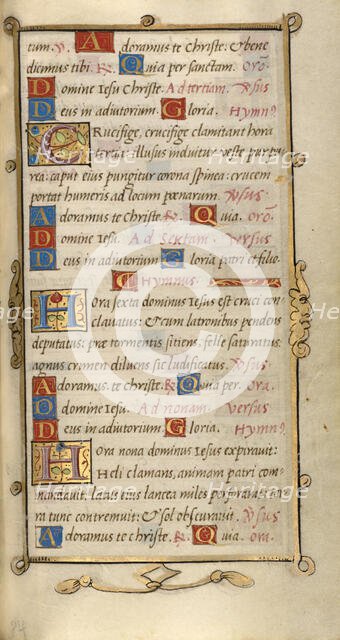 tum. ℣. Adoramus te Christe: & bene
dicimus tibi. ℟. Quia per sanctam. Orõ.
Domine Iesu Christe. Ad tertiam. ℣sus
Deus in adiutorium. Gloria. Hymn⁹.
Crucifige, crucifige clamitant hora
tertia: illusus induitur veste purpu
rea: caput eius pungitur corona spinea: crucem
portat humeris ad locum poenarum. ℣sus
Adoramus te Christe. ℟. Quia. Orõ.
Domine Iesu. Ad sextam. versus
Deus in adiutorium. Gloria patri et filio.
Hymnus.
Hora sexta dominus Iesus est cruci con
clauatus: & cum latronibus pendens
deputatus: præ tormentis sitiens, felle saturatus:
agnus crimen diluens sic ludificatus. ℣sus
Adoramus. te christe. ℟. Quia per. Ora.
Domine Iesu. Ad nonam. versus
Deus in adiutorium. Gloria. Hymn⁹.
Hora nona dominus Iesus expirauit:
Heli clamans, animam patri com-
mandauit: latus eius lancea miles perforauit: ter
ra tunc contremuit: & sol obscurauit. ℣sus
Adoramus te christe. ℟. Quia. ora.
Heritage
Heritage
Heritage
Heritage
Images